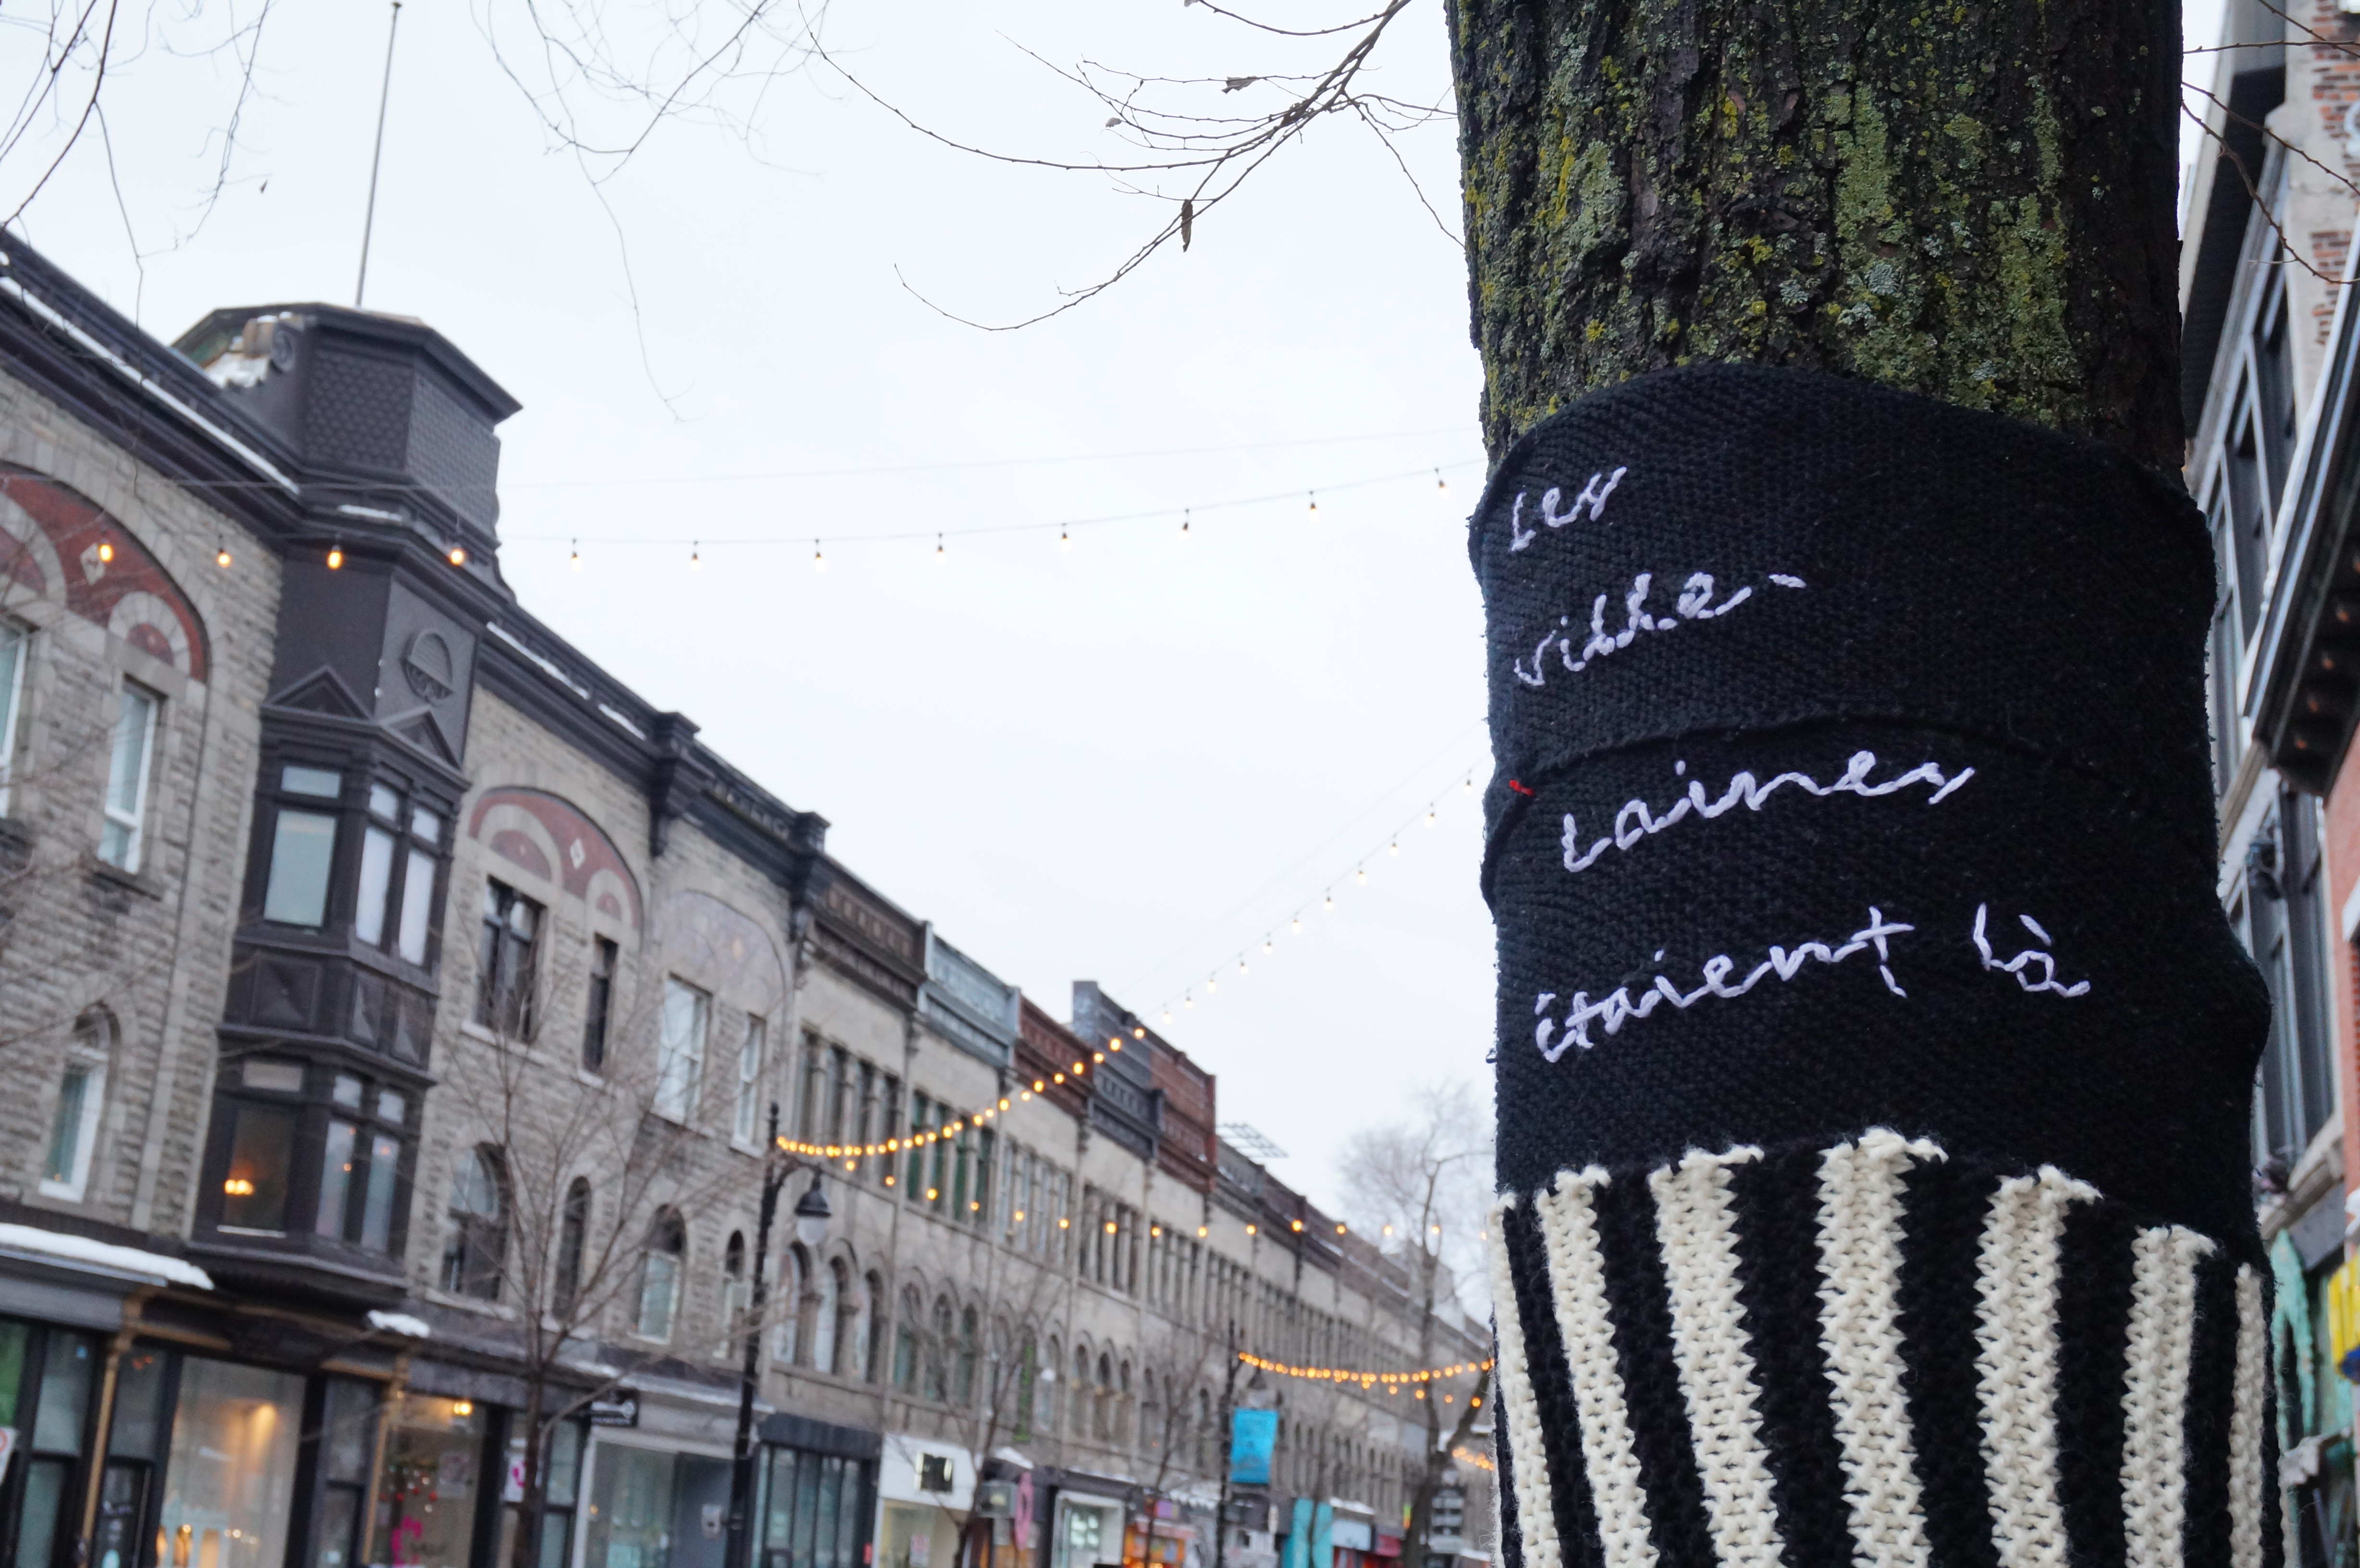 Les
ville-
Laines
étaient là